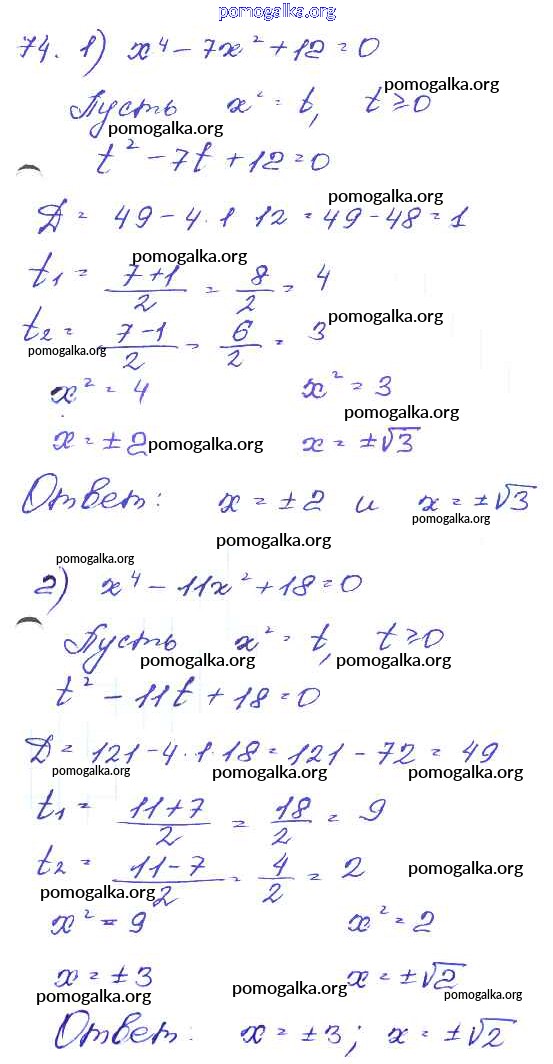 pomogalka.org
74. 1) x⁴ - 7x² + 12 = 0
Пусть x² = t, t ≥ 0
pomogalka.org pomogalka.org
t² - 7t + 12 = 0
pomogalka.org
D = 49 - 4·1 12 = 49 - 48 = 1
pomogalka.org
t₁ = (7+1)/2 = 8/2 = 4
pomogalka.org
t₂ = (7-1)/2 = 6/2 = 3
pomogalka.org
x² = 4 x² = 3
pomogalka.org
x = ±2 pomogalka.org x = ±√3
Ответ: x = ±2 и x = ±√3
pomogalka.org
pomogalka.org
pomogalka.org
2) x⁴ - 11x² + 18 = 0
Пусть x² = t, t ≥ 0
pomogalka.org pomogalka.org
t² - 11t + 18 = 0
D = 121 - 4·1·18 = 121 - 72 = 49
pomogalka.org pomogalka.org pomogalka.org
t₁ = (11+7)/2 = 18/2 = 9
t₂ = (11-7)/2 = 4/2 = 2 pomogalka.org
pomogalka.org
x² = 9 x² = 2
x = ±3 x = ±√2
pomogalka.org pomogalka.org pomogalka.org
Ответ: x = ±3; x = ±√2